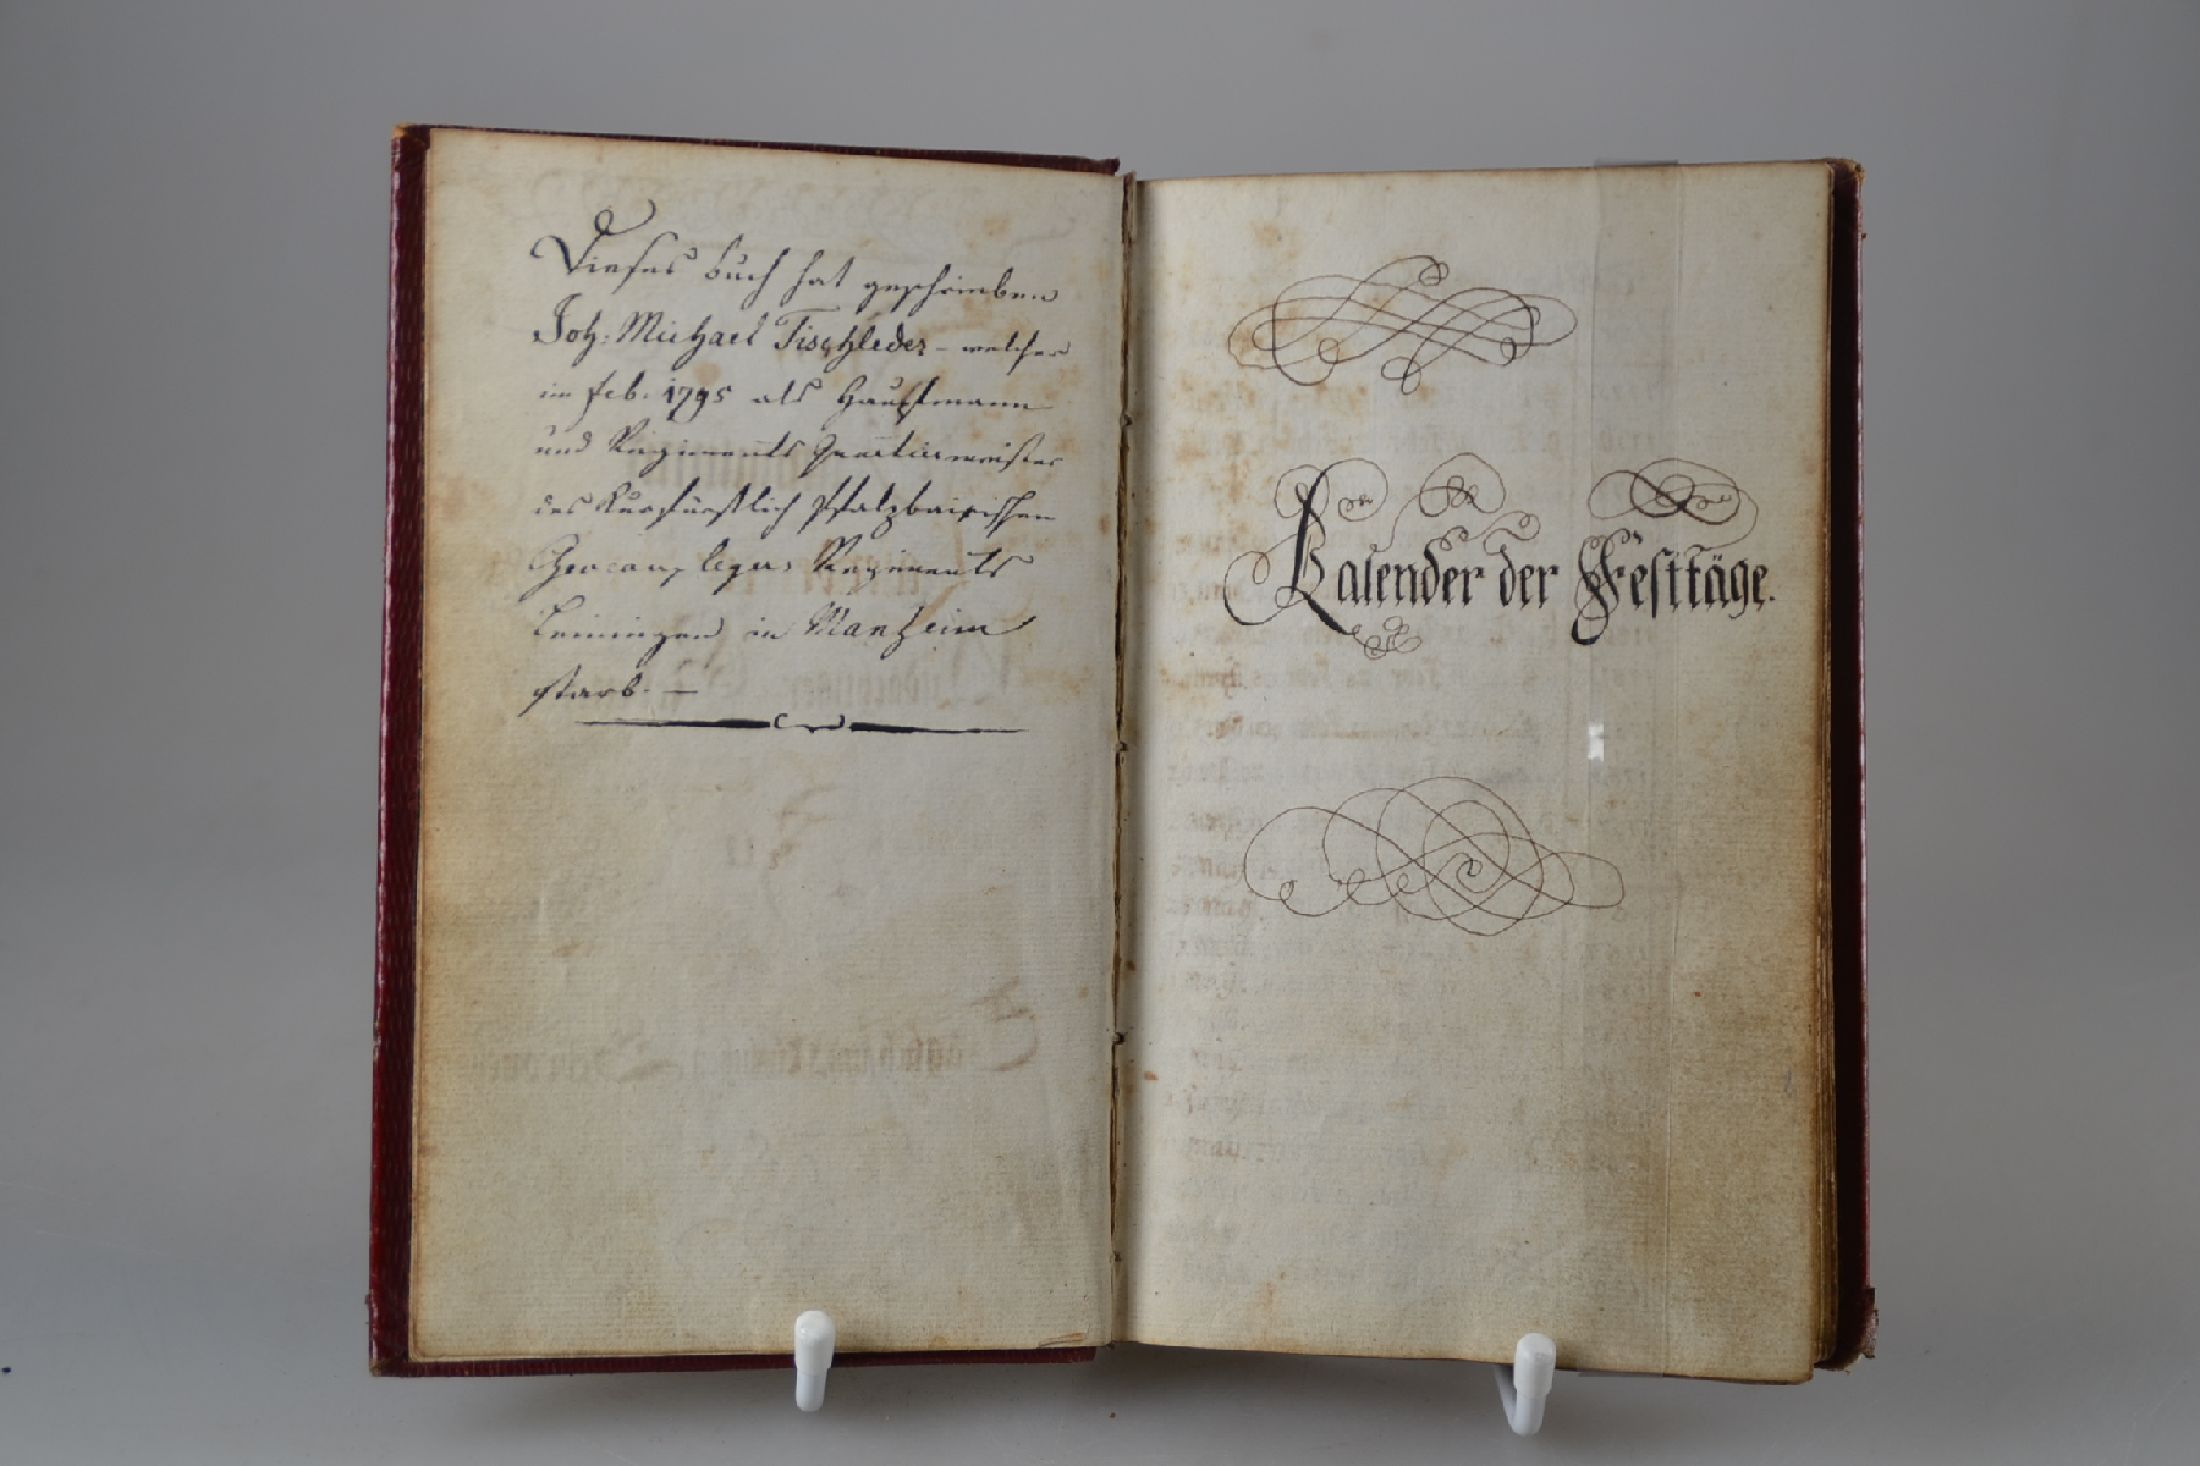 Dieses buch hat geschrieben
Joh: Michael Tischleder – welcher
im feb. 1795 als Hauptmann
und Regiments Quartiermeister
des Kurfürstlich Pfalzbairischen
Regiments
Leiningen in Manheim
starb. –
Kalender der Festtäge.